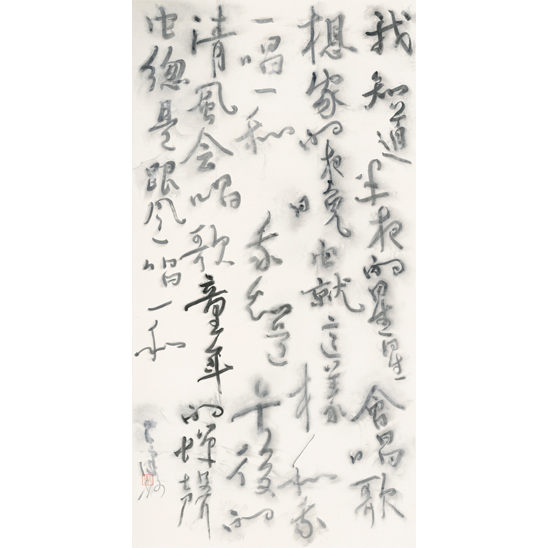 我知道半夜的星星會唱歌
想家的夜晚它就這樣和我
一唱一和我知道午後的
清風会唱歌童年的蟬聲
它總是跟風一唱一和